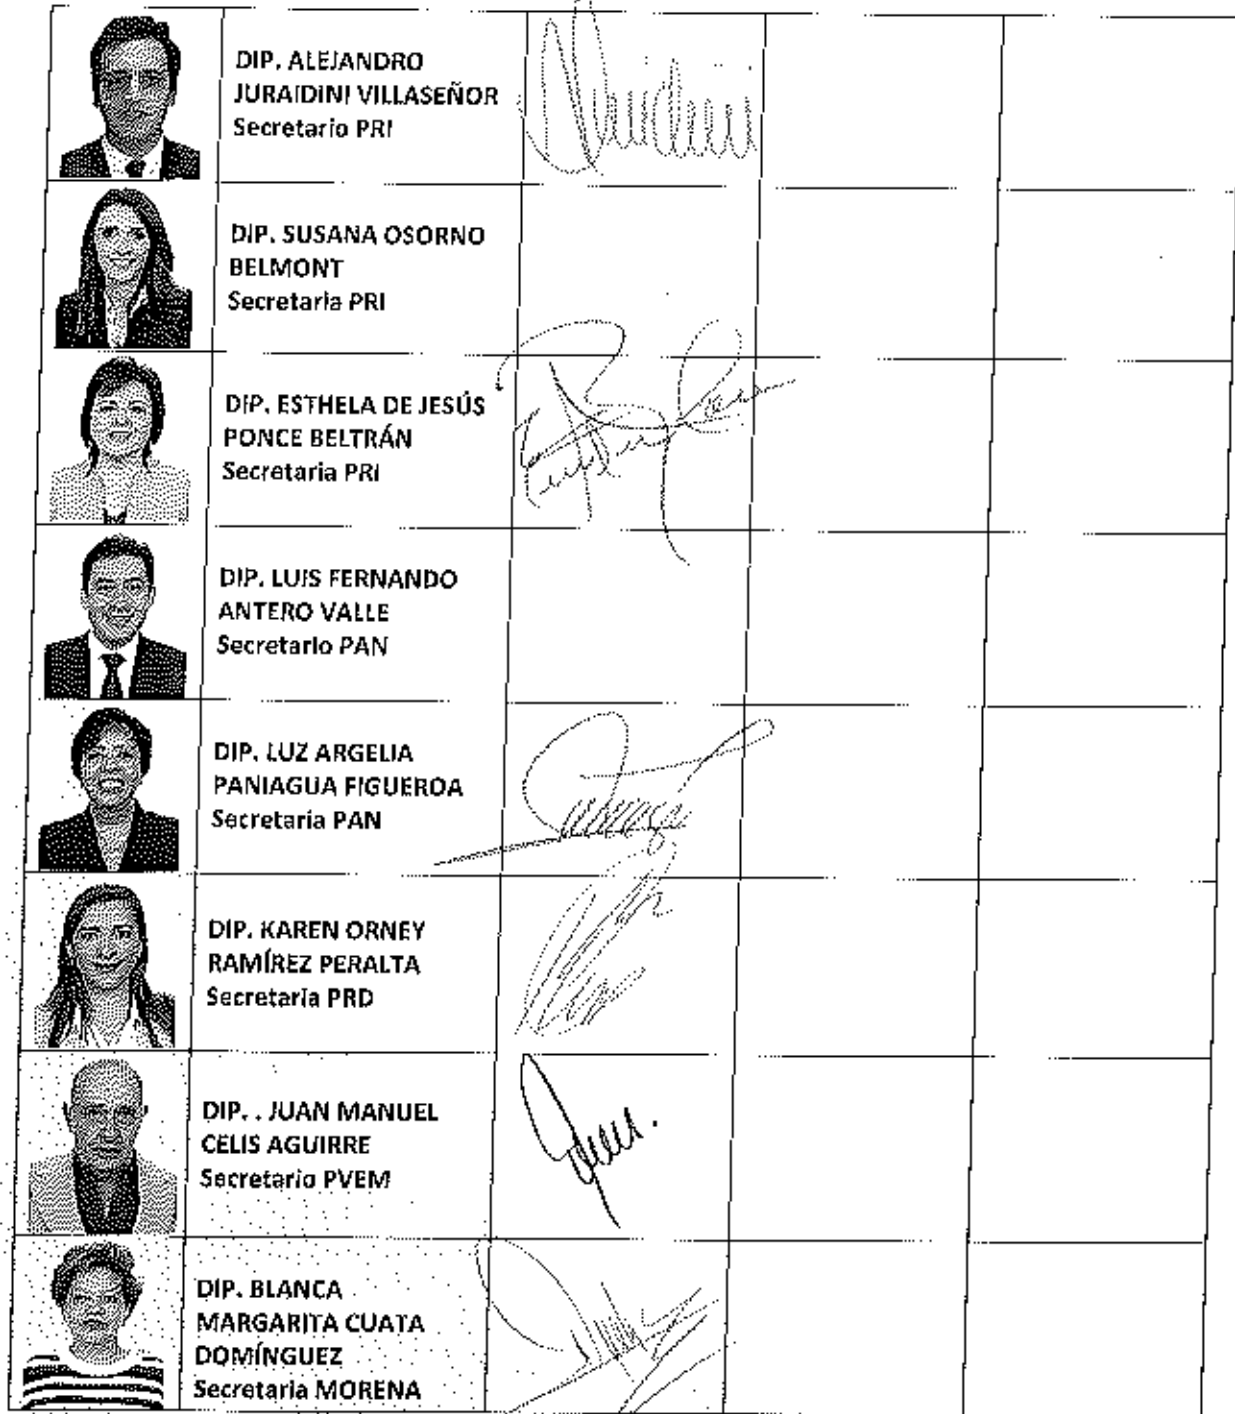 DIP. ALEJANDRO
JURAIDINI VILLASEÑOR
Secretario PRI
DIP. SUSANA OSORNO
BELMONT
Secretaria PRI
DIP. ESTHELA DE JESÚS
PONCE BELTRÁN
Secretaria PRI
DIP. LUIS FERNANDO
ANTERO VALLE
Secretario PAN
DIP. LUZ ARGELIA
PANIAGUA FIGUEROA
Secretaria PAN
DIP. KAREN ORNEY
RAMÍREZ PERALTA
Secretaria PRD
DIP. . JUAN MANUEL
CELIS AGUIRRE
Secretario PVEM
DIP. BLANCA
MARGARITA CUATA
DOMÍNGUEZ
Secretaria MORENA